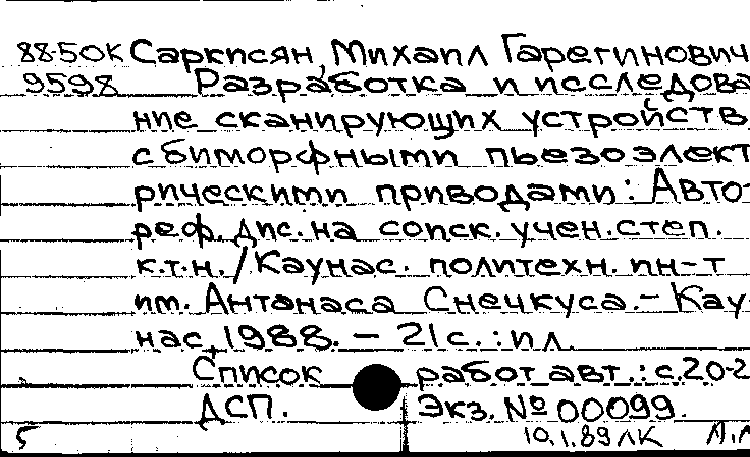 88-50К Саркисян, Михаил Гарегинович
9598 Разработка и исследова
ние сканирующих устройств
с биморфными пьезоэлект
рическими приводами: Авто-
реф. дис. на соиск. учен. степ.
к.т.н. / Каунас. политехн. ин-т
им. Антанаса Снечкуса. - Кау
нас, 1988. - 21 с. : ил.
Список работ авт.: с. 20-2
ДСП. Экз. № 00099.
5 10.1.89 ЛК